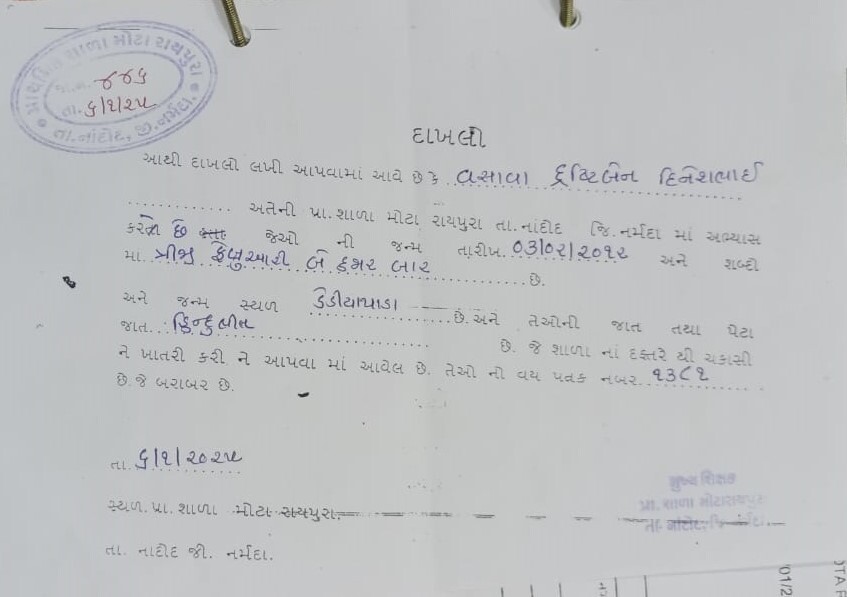 પ્રાથમિક શાળા મોટા રાયપુરા
જા.નં. ૪૪૬
તા. ૬/૧/૨૫
તા. નાંદોદ, જી. નર્મદા.
દાખલો
આથી દાખલો લખી આપવામાં આવે છે કે વસાવા દ્રષ્ટિબેન દિનેશભાઈ
અતેની પ્રા.શાળા મોટા રાયપુરા તા.નાંદોદ જિ.નર્મદા માં અભ્યાસ
કરે છે જેઓ ની જન્મ તારીખ. ૦૩/૦૨/૨૦૧૨ અને શબ્દો
મા. ત્રીજી ફેબ્રુઆરી બે હજાર બાર છે.
અને જન્મ સ્થળ ડેડીયાપાડા છે.અને તેઓની જાત તથા પેટા
જાત. હિન્દુભીલ છે. જે શાળા નાં દફ્તરે થી ચકાસી
ને ખાતરી કરી ને આપવા માં આવેલ છે. તેઓ ની વય પત્રક નબર ૧૩૮૧
છે.જે બરાબર છે.
તા. ૬/૧/૨૦૨૫
સ્થળ.પ્રા.શાળા મોટા રાયપુરા.
તા. નાદોદ જી. નર્મદા.
મુખ્ય શિક્ષક
પ્રા. શાળા મોટારાયપુરા
તા. નાંદોદ, જિ. નર્મદા.
01/2